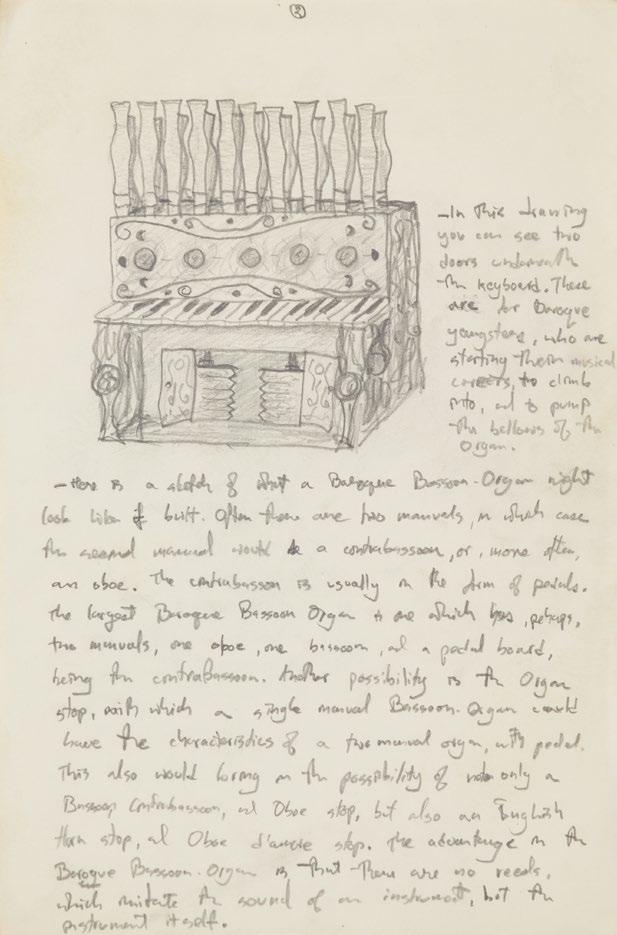 2
- In this drawing
you can see two
doors underneath
the keyboard. These
are for Baroque
youngsters, who are
starting their musical
careers, to climb
into, and to pump
the bellows of the
Organ.
- Here is a sketch of what a Baroque Bassoon-Organ might
look like if built. Often there are two manuals, in which case
the second manual would be a contrabassoon, or, more often,
an oboe. The contrabassoon is usually in the form of pedals.
The largest Baroque Bassoon Organ is one which has, perhaps,
two manuals, one oboe, one bassoon, and a pedal board,
being the contrabassoon. Another possibility is the Organ
stop, with which a single manual Bassoon-Organ could
have the characteristics of a two manual organ, with pedal.
This also would bring in the possibility of not only a
Bassoon, Contrabassoon, and Oboe stop, but also an English
Horn stop, and Oboe d'amore stop. The advantage in the
Baroque Bassoon-Organ is that there are no reeds,
which imitate the sound of an instrument, but the
instrument itself.